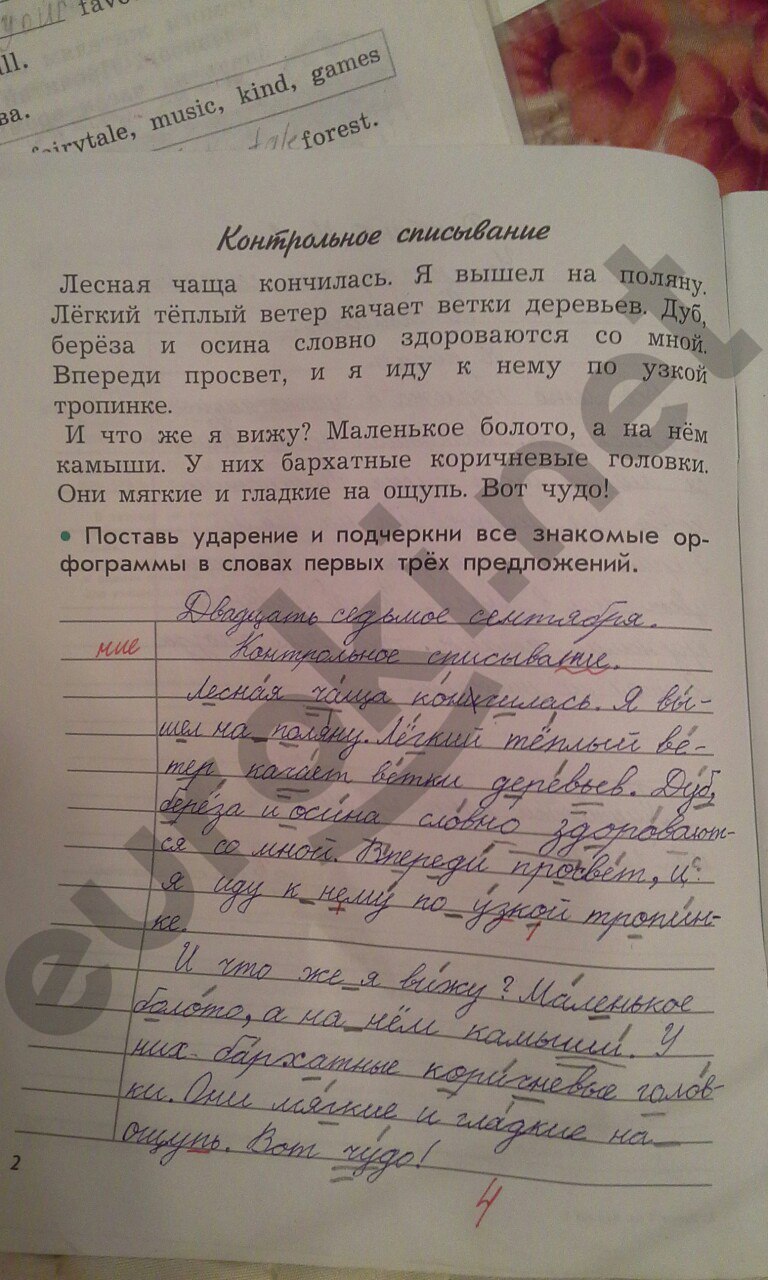 your favo
all.
ва.
fairytale, music, kind, games
tale forest.
Контрольное списывание
Лесная чаща кончилась. Я вышел на поляну.
Лёгкий тёплый ветер качает ветки деревьев. Дуб,
берёза и осина словно здороваются со мной.
Впереди просвет, и я иду к нему по узкой
тропинке.
И что же я вижу? Маленькое болото, а на нём
камыши. У них бархатные коричневые головки.
Они мягкие и гладкие на ощупь. Вот чудо!
• Поставь ударение и подчеркни все знакомые ор-
фограммы в словах первых трёх предложений.
Двадцать седьмое сентября.
ние Контрольное списыва
Лесна́я ча́ща ко́нчилась. Я вы́-
шел на поля́ну. Лёгкий тёплый ве́-
тер кача́ет ве́тки дере́вьев. Ду́б,
берёза и оси́на сло́вно здоро́вают-
ся со мной. Впереди́ просве́т, и
я иду к нему́ по у́зкой тропи́н-
ке.
И что же я ви́жу? Ма́ленькое
боло́то, а на нём камыши́. У
них ба́рхатные кори́чневые голо́в-
ки. Они мя́гкие и гла́дкие на
ощупь. Вот чу́до!
2
4
euroki.net